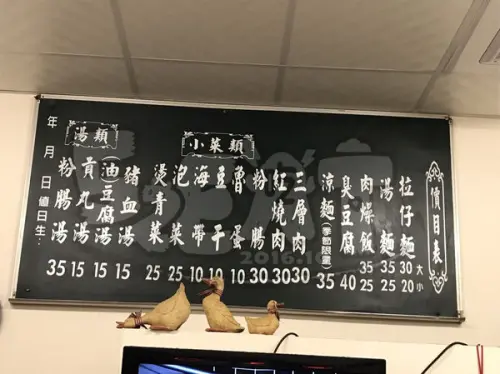 價目表
大 小
拉仔麵 30 20
湯麵 35 25
肉燥飯 35 25
臭豆腐 40
涼麵(季節限賣) 35
三層肉 30
紅燒肉 30
粉腸 30
小菜類
魯蛋 10
豆干 10
海帶 10
泡菜 25
燙青菜 25
湯類
豬血湯 15
(油)豆腐湯 15
貢丸湯 15
粉腸湯 35
年 月 日 值日生: